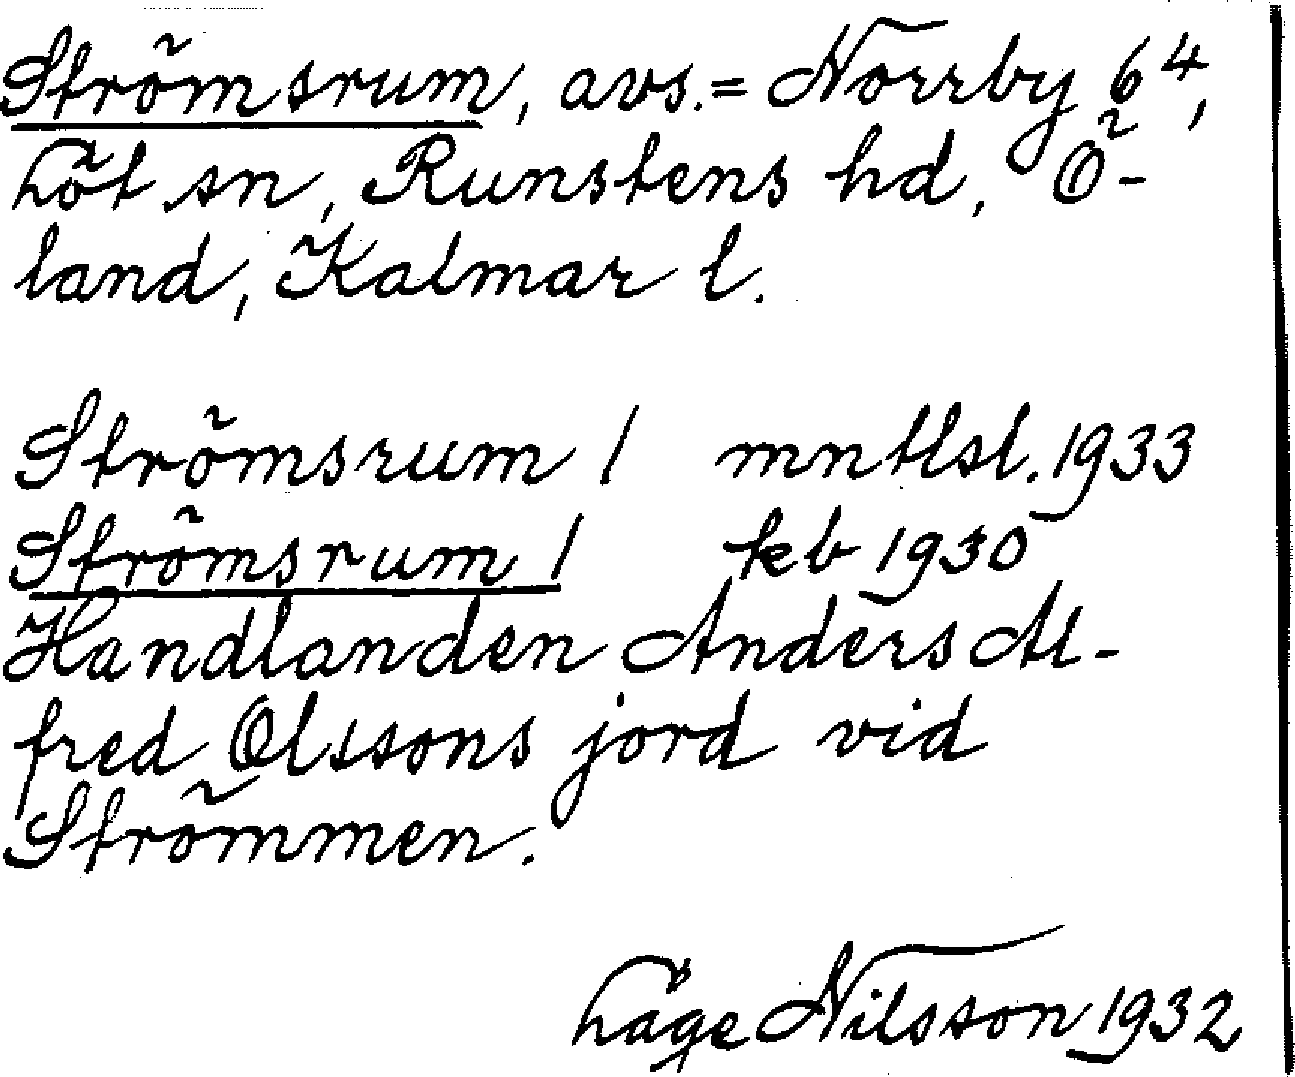 Strömsrum, avs.= Norrby 6⁴,
Löt sn, Runstens hd, Ö-
land, Kalmar l.
Strömsrum / mntlsl. 1933
Strömsrum / kb 1930
Handlanden Anders Al-
fred Olssons jord vid
Strömmen.
Låge Nilsson 1932